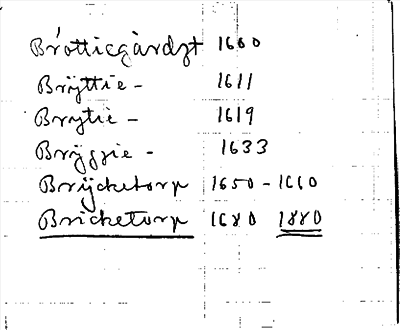 Bröttiegàrdzt 1600
Brÿttie - 1611
Brytie - 1619
Brÿggie - 1633
Brÿcketorp 1650 - 1660
Bricketorp 1680 1880